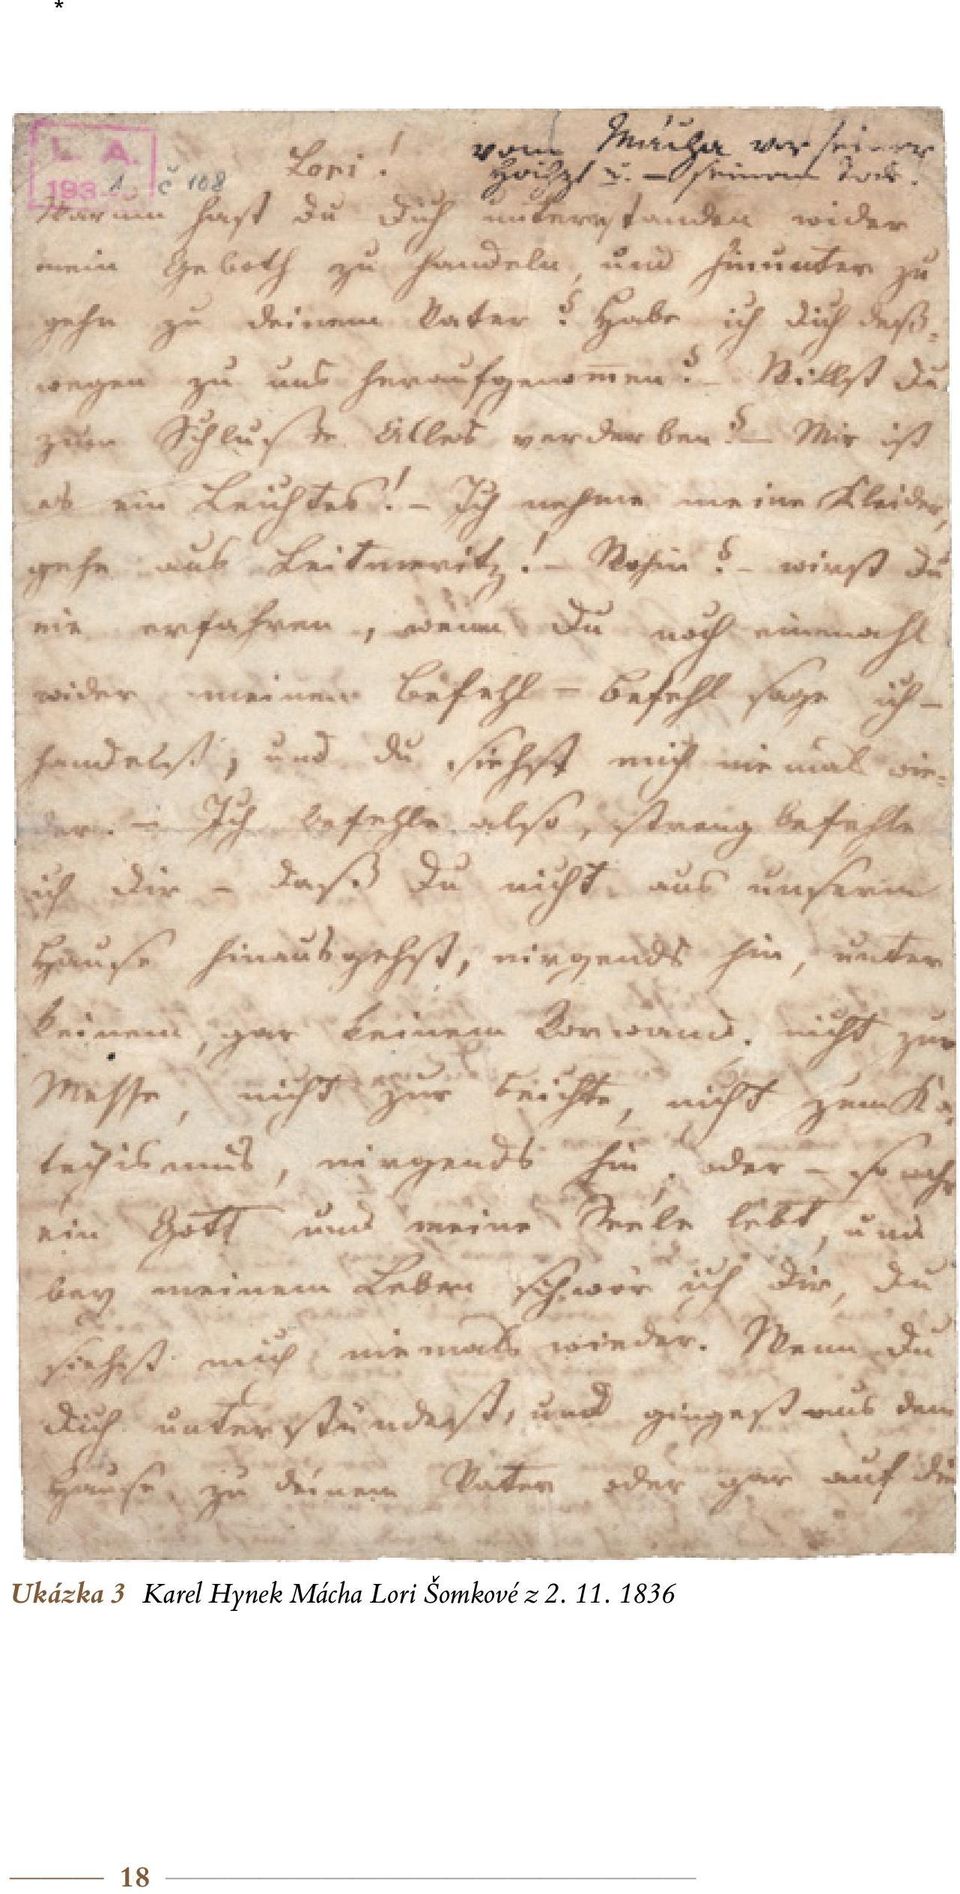 *
L. A.
193 1 č 108
Lori! vom Mácha vor seiner
Hochzt u. – seinem Tode.
Warum hast du dich unterstanden wider
mein Geboth zu handeln, und hinunter zu
gehn zu deinem Vater? Habe ich dich deß-
wegen zu uns heraufgenom̅en? – Willst du
zum Schluße Alles verderben? – Mir ist
es ein Leichtes! – Ich nehme meine Kleider,
gehe aus Leitmeritz! – Wohin? – wirst du
nie erfahren, wenn du noch einmahl
wider meinen Befehl – Befehl sage ich –
handelst, und du siehst mich niemals wie-
der. – Ich befehle also, streng befehle
ich dir – daß du nicht aus unserm
Hause hinausgehst, nirgends hin, unter
keinem, gar keinem Vorwand. nicht zur
Messe, nicht zur Beichte, nicht zum Ka-
techismus, nirgends hin, oder – so wahr
ein Gott und meine Seele lebt, und
bey meinem Leben schwör ich dir, du
siehst mich niemals wieder. Wenn du
dich unterstündest, und gingest aus dem
Hause zu deinem Vater oder gar auf die
Ukázka 3 Karel Hynek Mácha Lori Šomkové z 2. 11. 1836
18